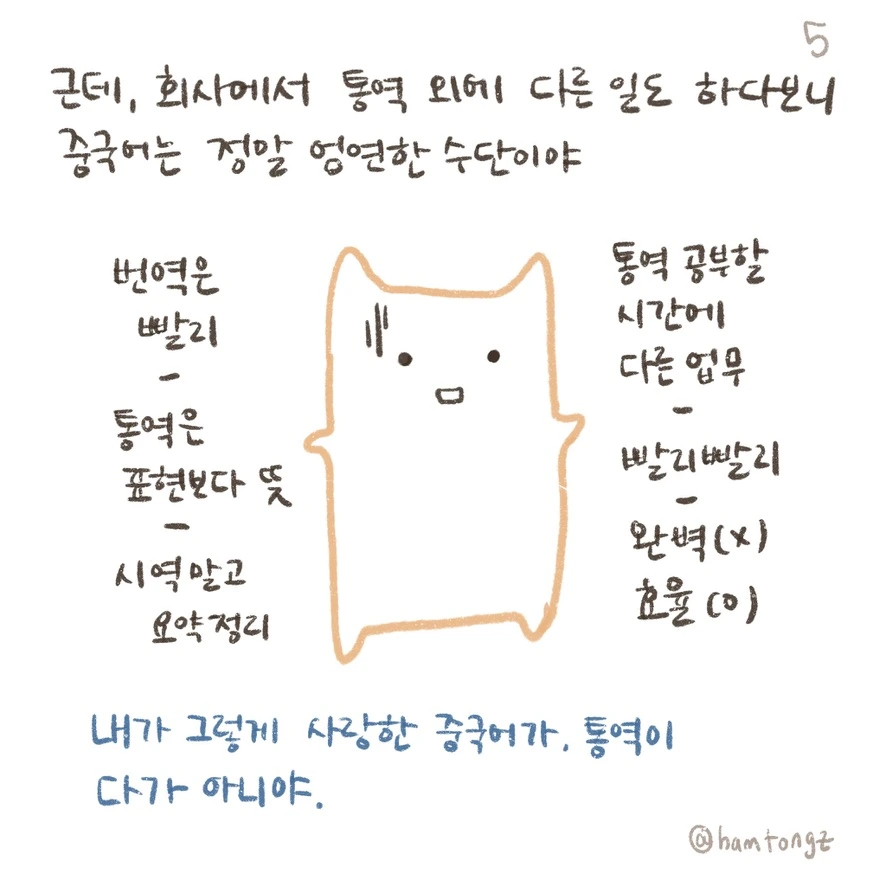 5
근데, 회사에서 통역 외에 다른 일도 하다보니
중국어는 정말 엄연한 수단이야
번역은
빨리
-
통역은
표현보다 뜻
-
시역말고
요약정리
통역 공부할
시간에
다른 업무
-
빨리빨리
-
완벽(x)
효율(o)
내가 그렇게 사랑한 중국어가, 통역이
다가 아니야.
@hamtongz